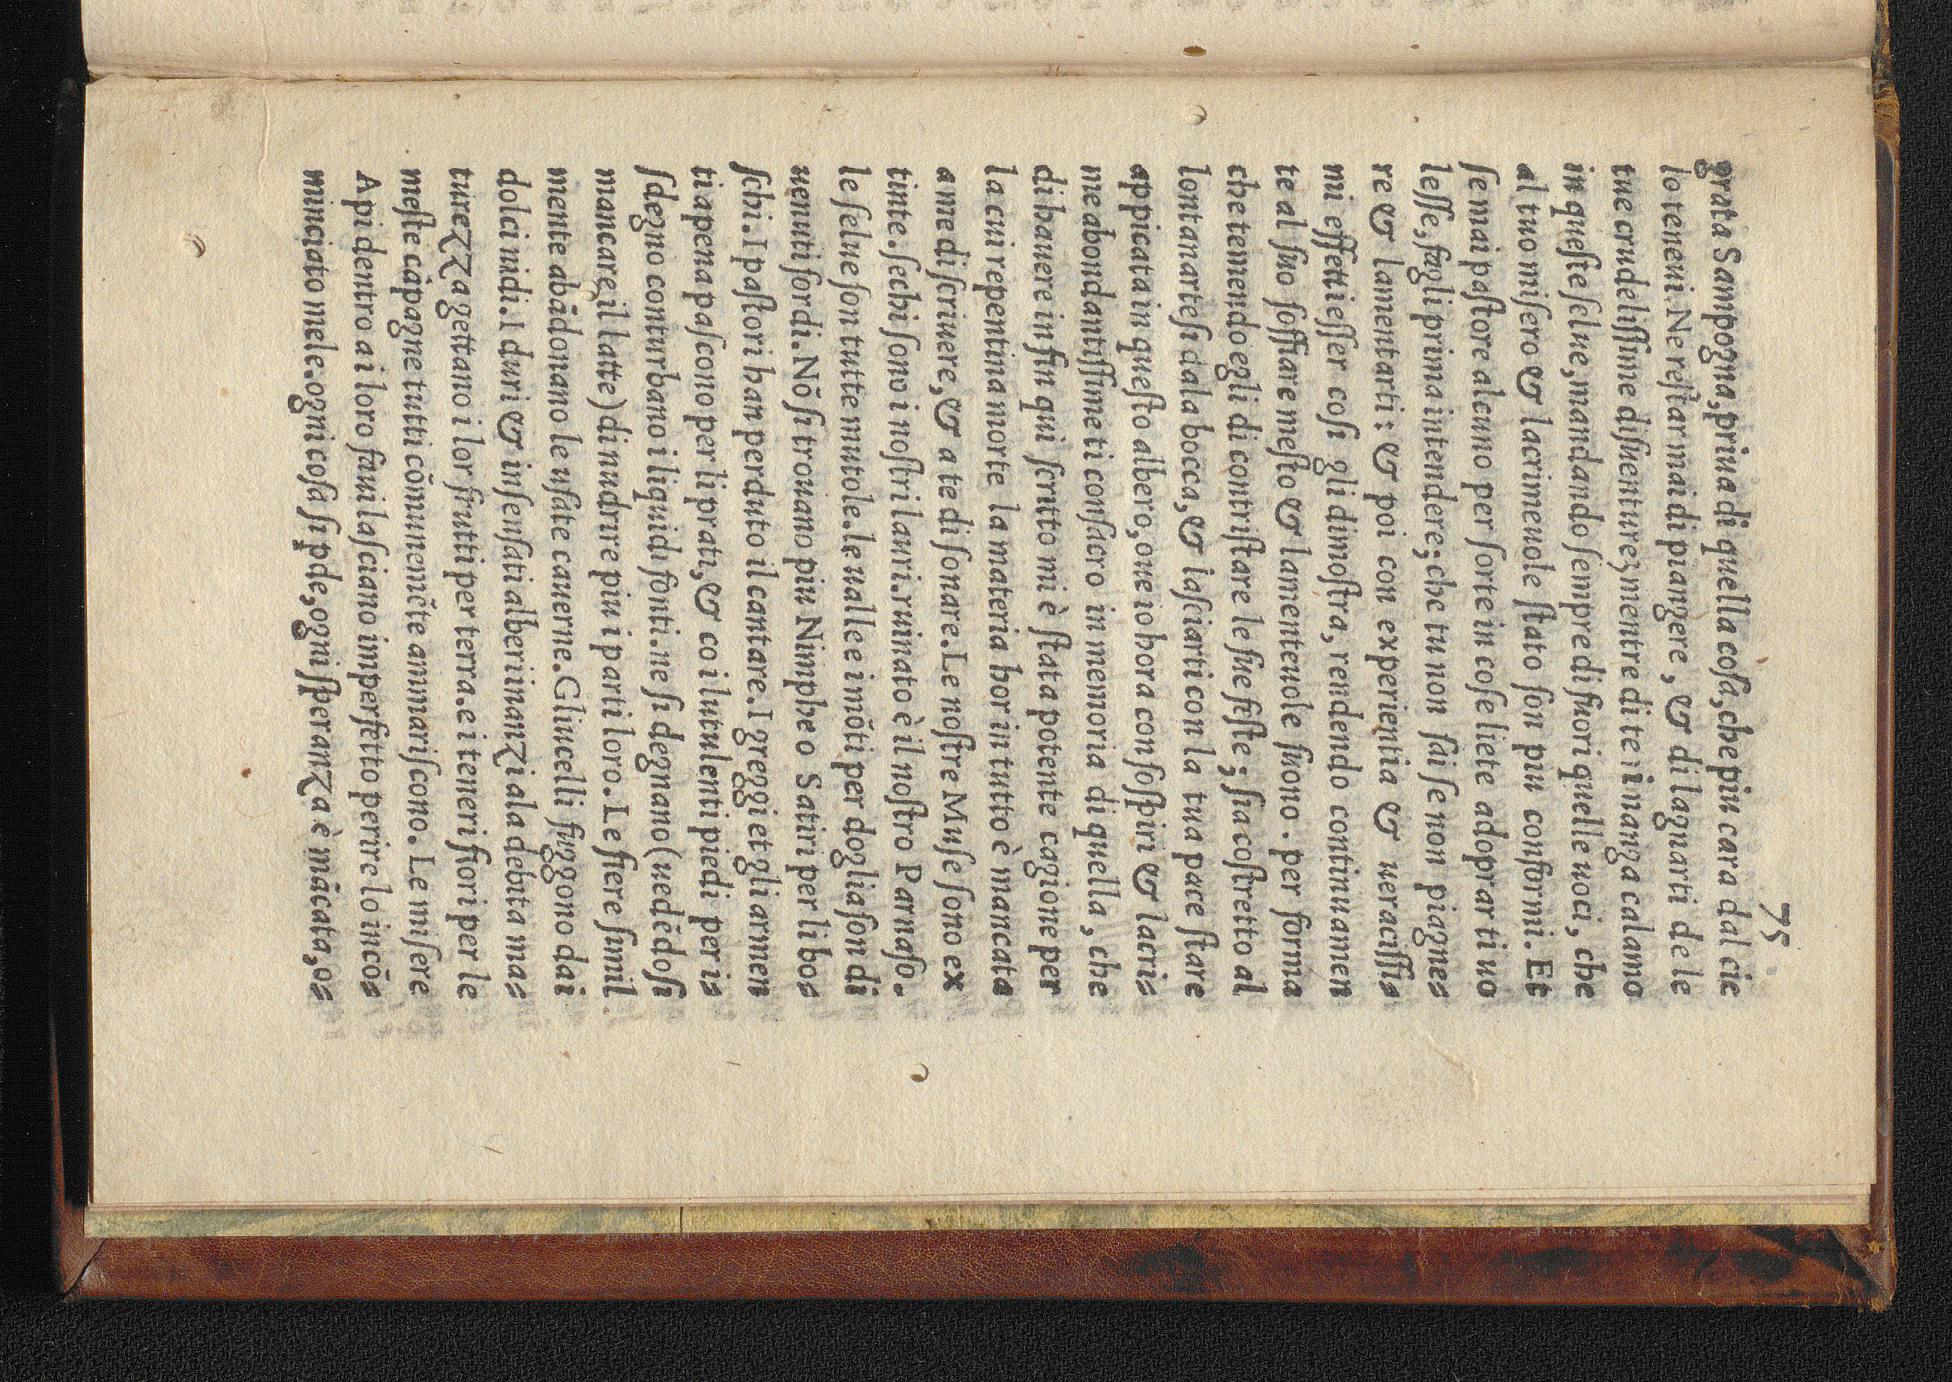 75
grata Sampogna, priua di quella cosa, che piu cara dal cie
lo teneui. Ne restar mai di piangere, & di lagnarti de le
tue crudelissime disuenture; mentre di te inanza calamo
in queste selue, mandando sempre di fuori quelle uoci, che
al tuo misero & lacrimeuole stato son piu conformi. Et
se mai pastore alcuno per sorte in cose liete adoprar ti uo
lesse, fagli prima intendere; che tu non sai se non piagnes
re & lamentarti: & poi con experientia & ueracissis
mi effetti esser cosi gli dimostra, rendendo continuamen
te al suo soffiare mesto & lamenteuole suono. per forma
che temendo egli di contristare le sue feste; sia costretto al
lontanartesi da la bocca, & lasciarti con la tua pace stare
appicata in questo albero, oue io hora con sospiri & lacris
me abondantissime ti consacro in memoria di quella, che
di hauere infin qui scritto mi è stata potente cagione per
la cui repentina morte la materia hor in tutto è mancata
a me di scriuere, & a te di sonare. Le nostre Muse sono ex
tinte. sechi sono i nostri lauri. ruinato è il nostro Parnaso.
le selue son tutte mutole. le ualle e i mōti per doglia son di
uenuti sordi. Nō si trouano piu Nimphe o Satiri per li bos
schi. I pastori han perduto il cantare. I greggi et gli armen
ti apena pascono per li prati, & co i lutulenti piedi per is
sdegno conturbano i liquidi fonti. ne si degnano (uedēdosi
mancare il latte) di nudrire piu i parti loro. Le fiere simil
mente abādonano le usate cauerne. Gli ucelli fuggono dai
dolci nidi. I duri & insensati alberi inanzi a la debita mas
turezza gettano i lor frutti per terra. e i teneri fiori per le
meste cāpagne tutti cōmunemēte ammariscono. Le misere
Api dentro a i loro faui lasciano imperfetto perire lo incōs
minciato mele. ogni cosa si pde, ogni speranza è mācata, os